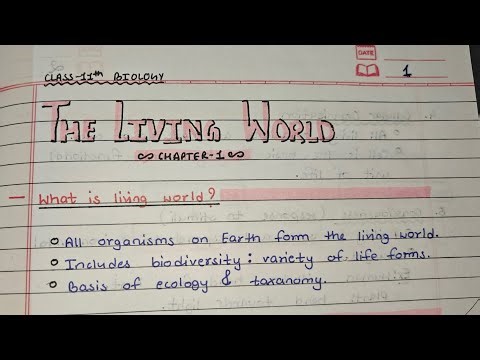 DATE
1
CLASS-11th BIOLOGY
THE LIVING WORLD
∞ CHAPTER-1 ∞
— What is living world?
○ All organisms on Earth form the living world.
○ Includes biodiversity: variety of life forms.
○ Basis of ecology & taxanomy.